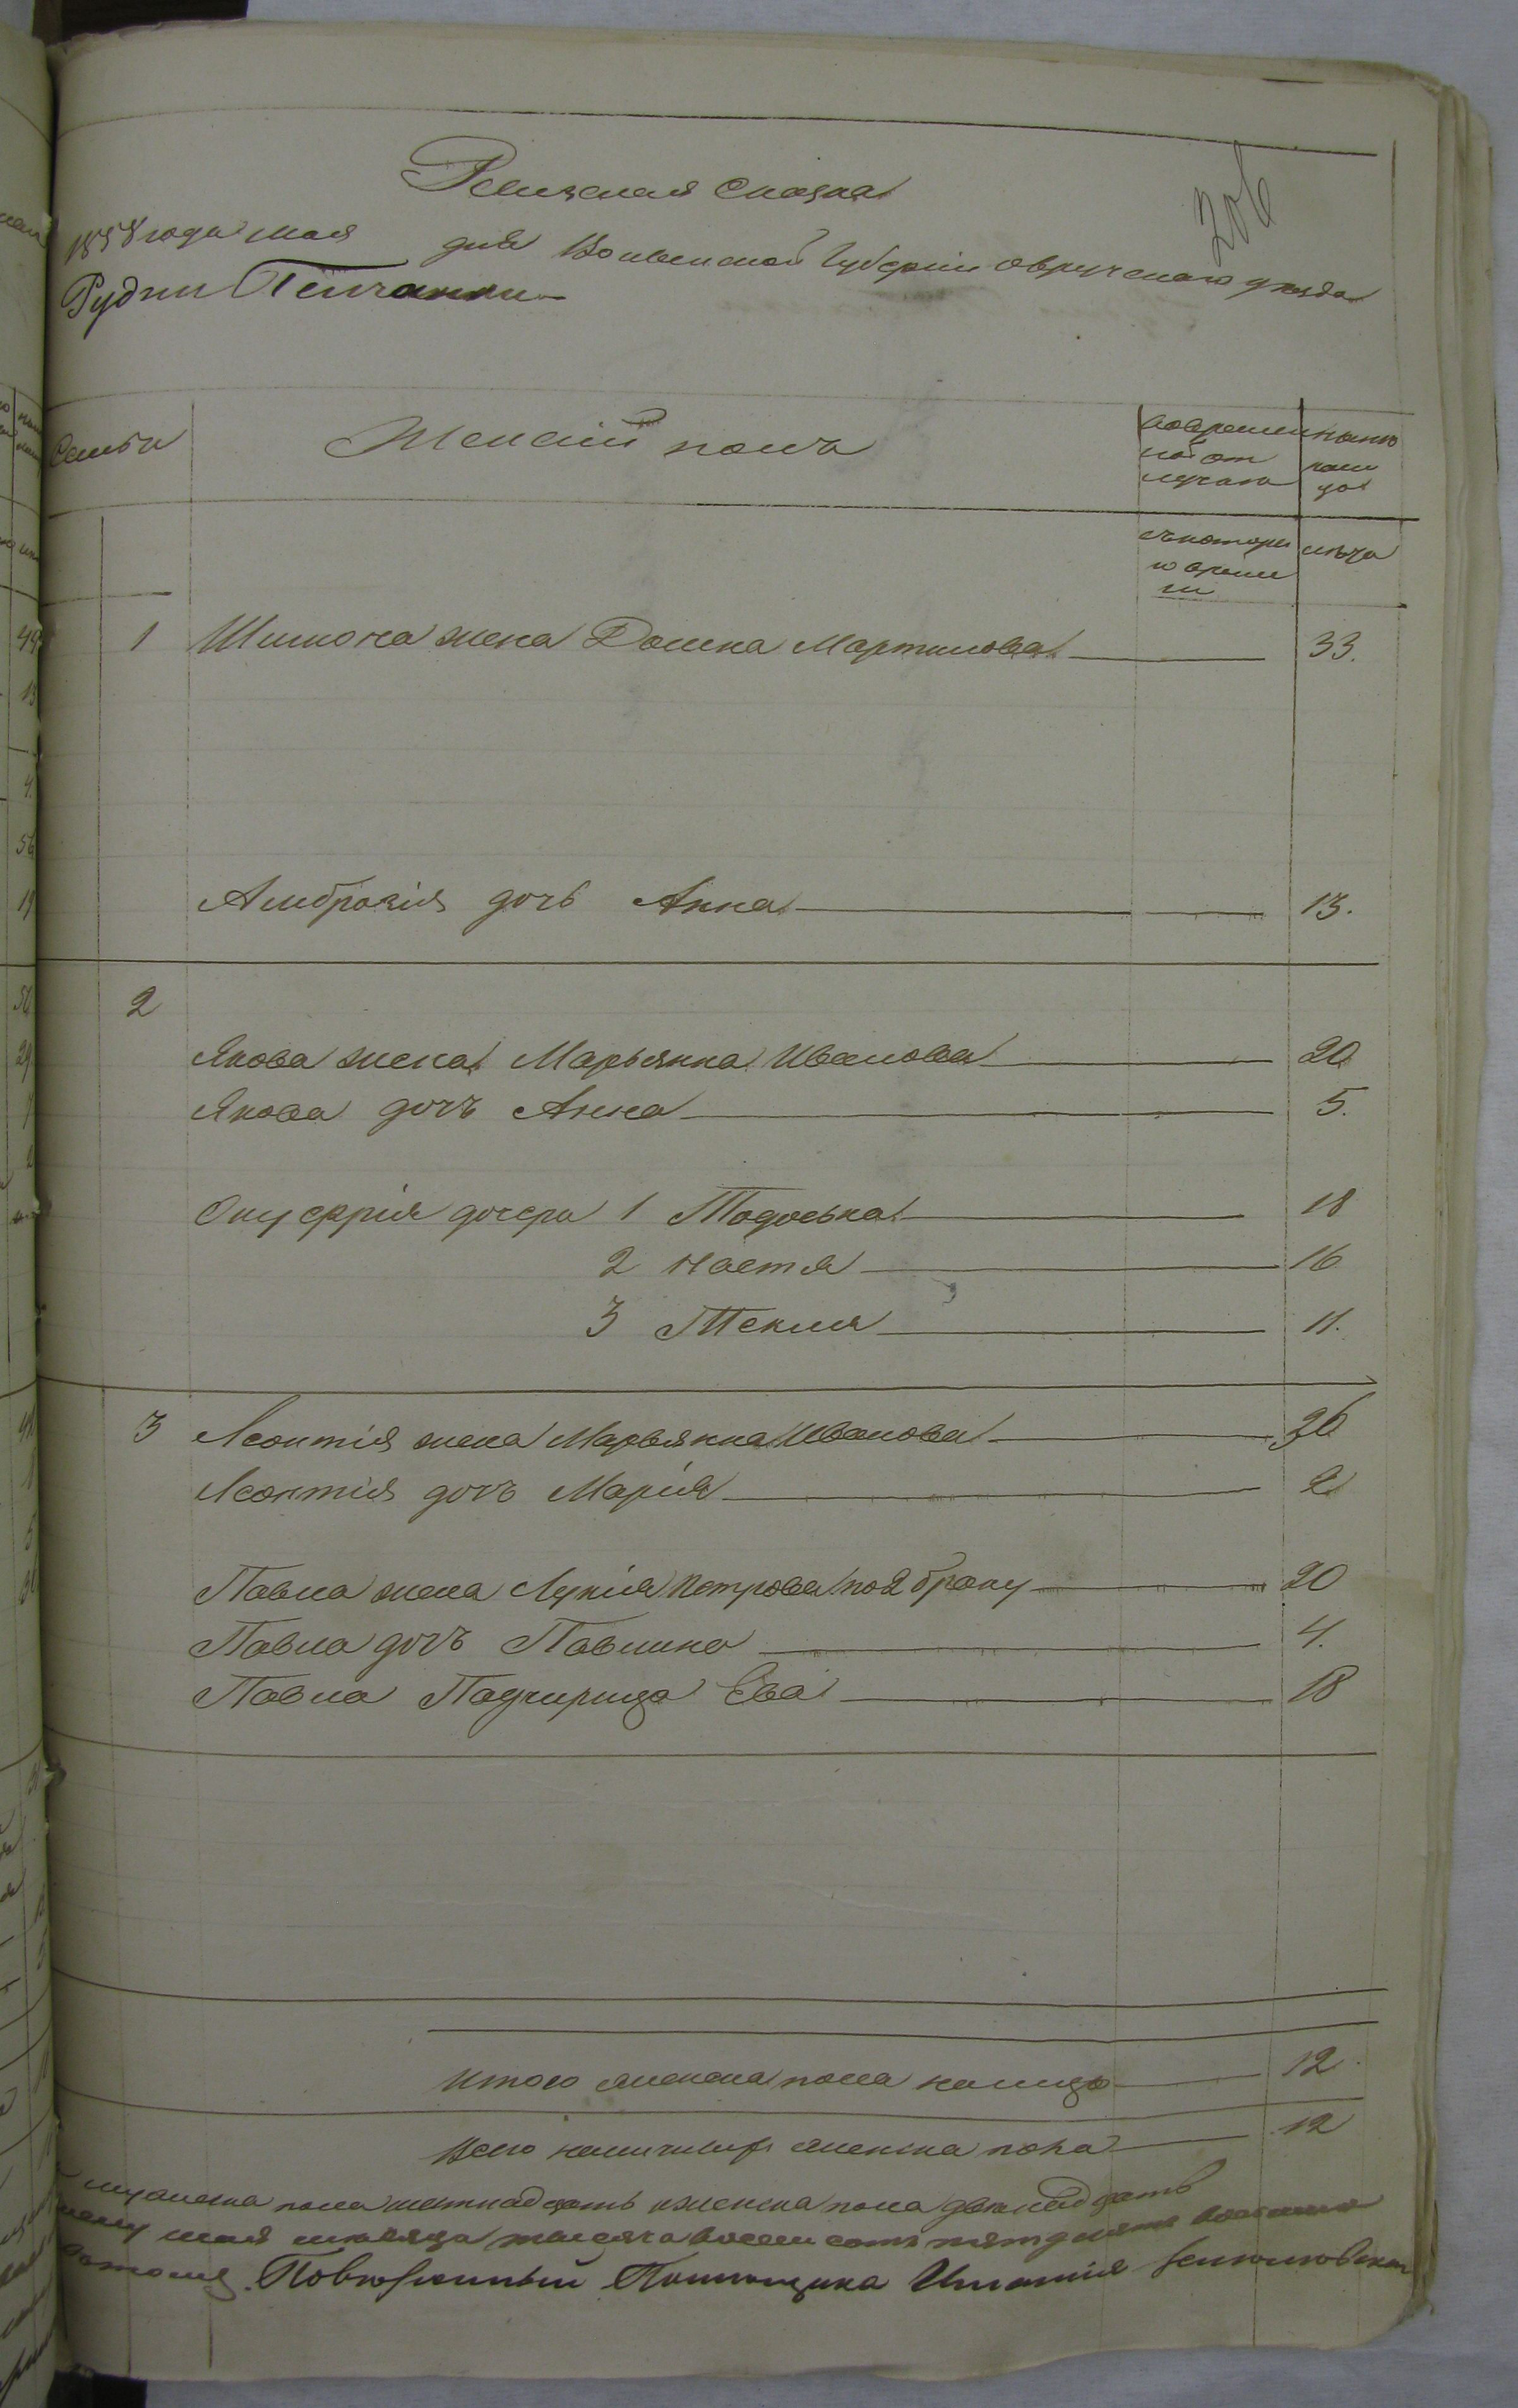 Ревизская сказка
206
1858 года мая дня Волынской Губернии Овручскаго уезда
Рудни
Семьи Женский полъ во времен ной от лучкѣ ныне нали цо
съ котора го време ни лѣта
1 Шимона жена Домка Мартинова 33.
Амброзія дочь Анна 13.
2
Якова жена Марьянна Иванова 20
Якова дочъ Анна 5.
Онуфрія дочери 1 Тодоська 18
2 Настя 16
3 Текля 11.
3 Леонтія жена Марьянна Иванова 26
Леонтія дочъ Марія 2
Павла жена Лукія Петрова по 2 браку 20
Павла дочъ Павлина 4.
Павла Падчирица Ева 18
Итого женска пола налицо 12
Всего женска пола 12
мужеска пола женска пола двенадцать
мая месяца тысяча восем сотъ пятдесятъ
Помещика